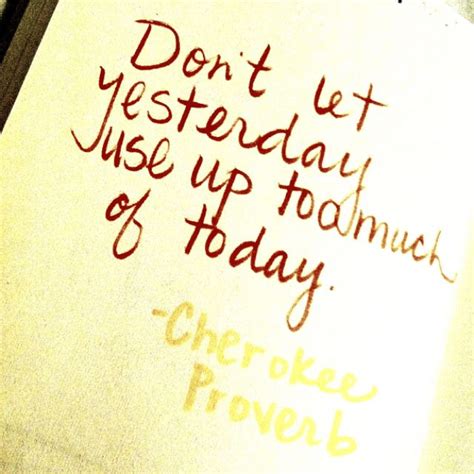 Don't let
yesterday
use up too much
of today.
-Cherokee
Proverb